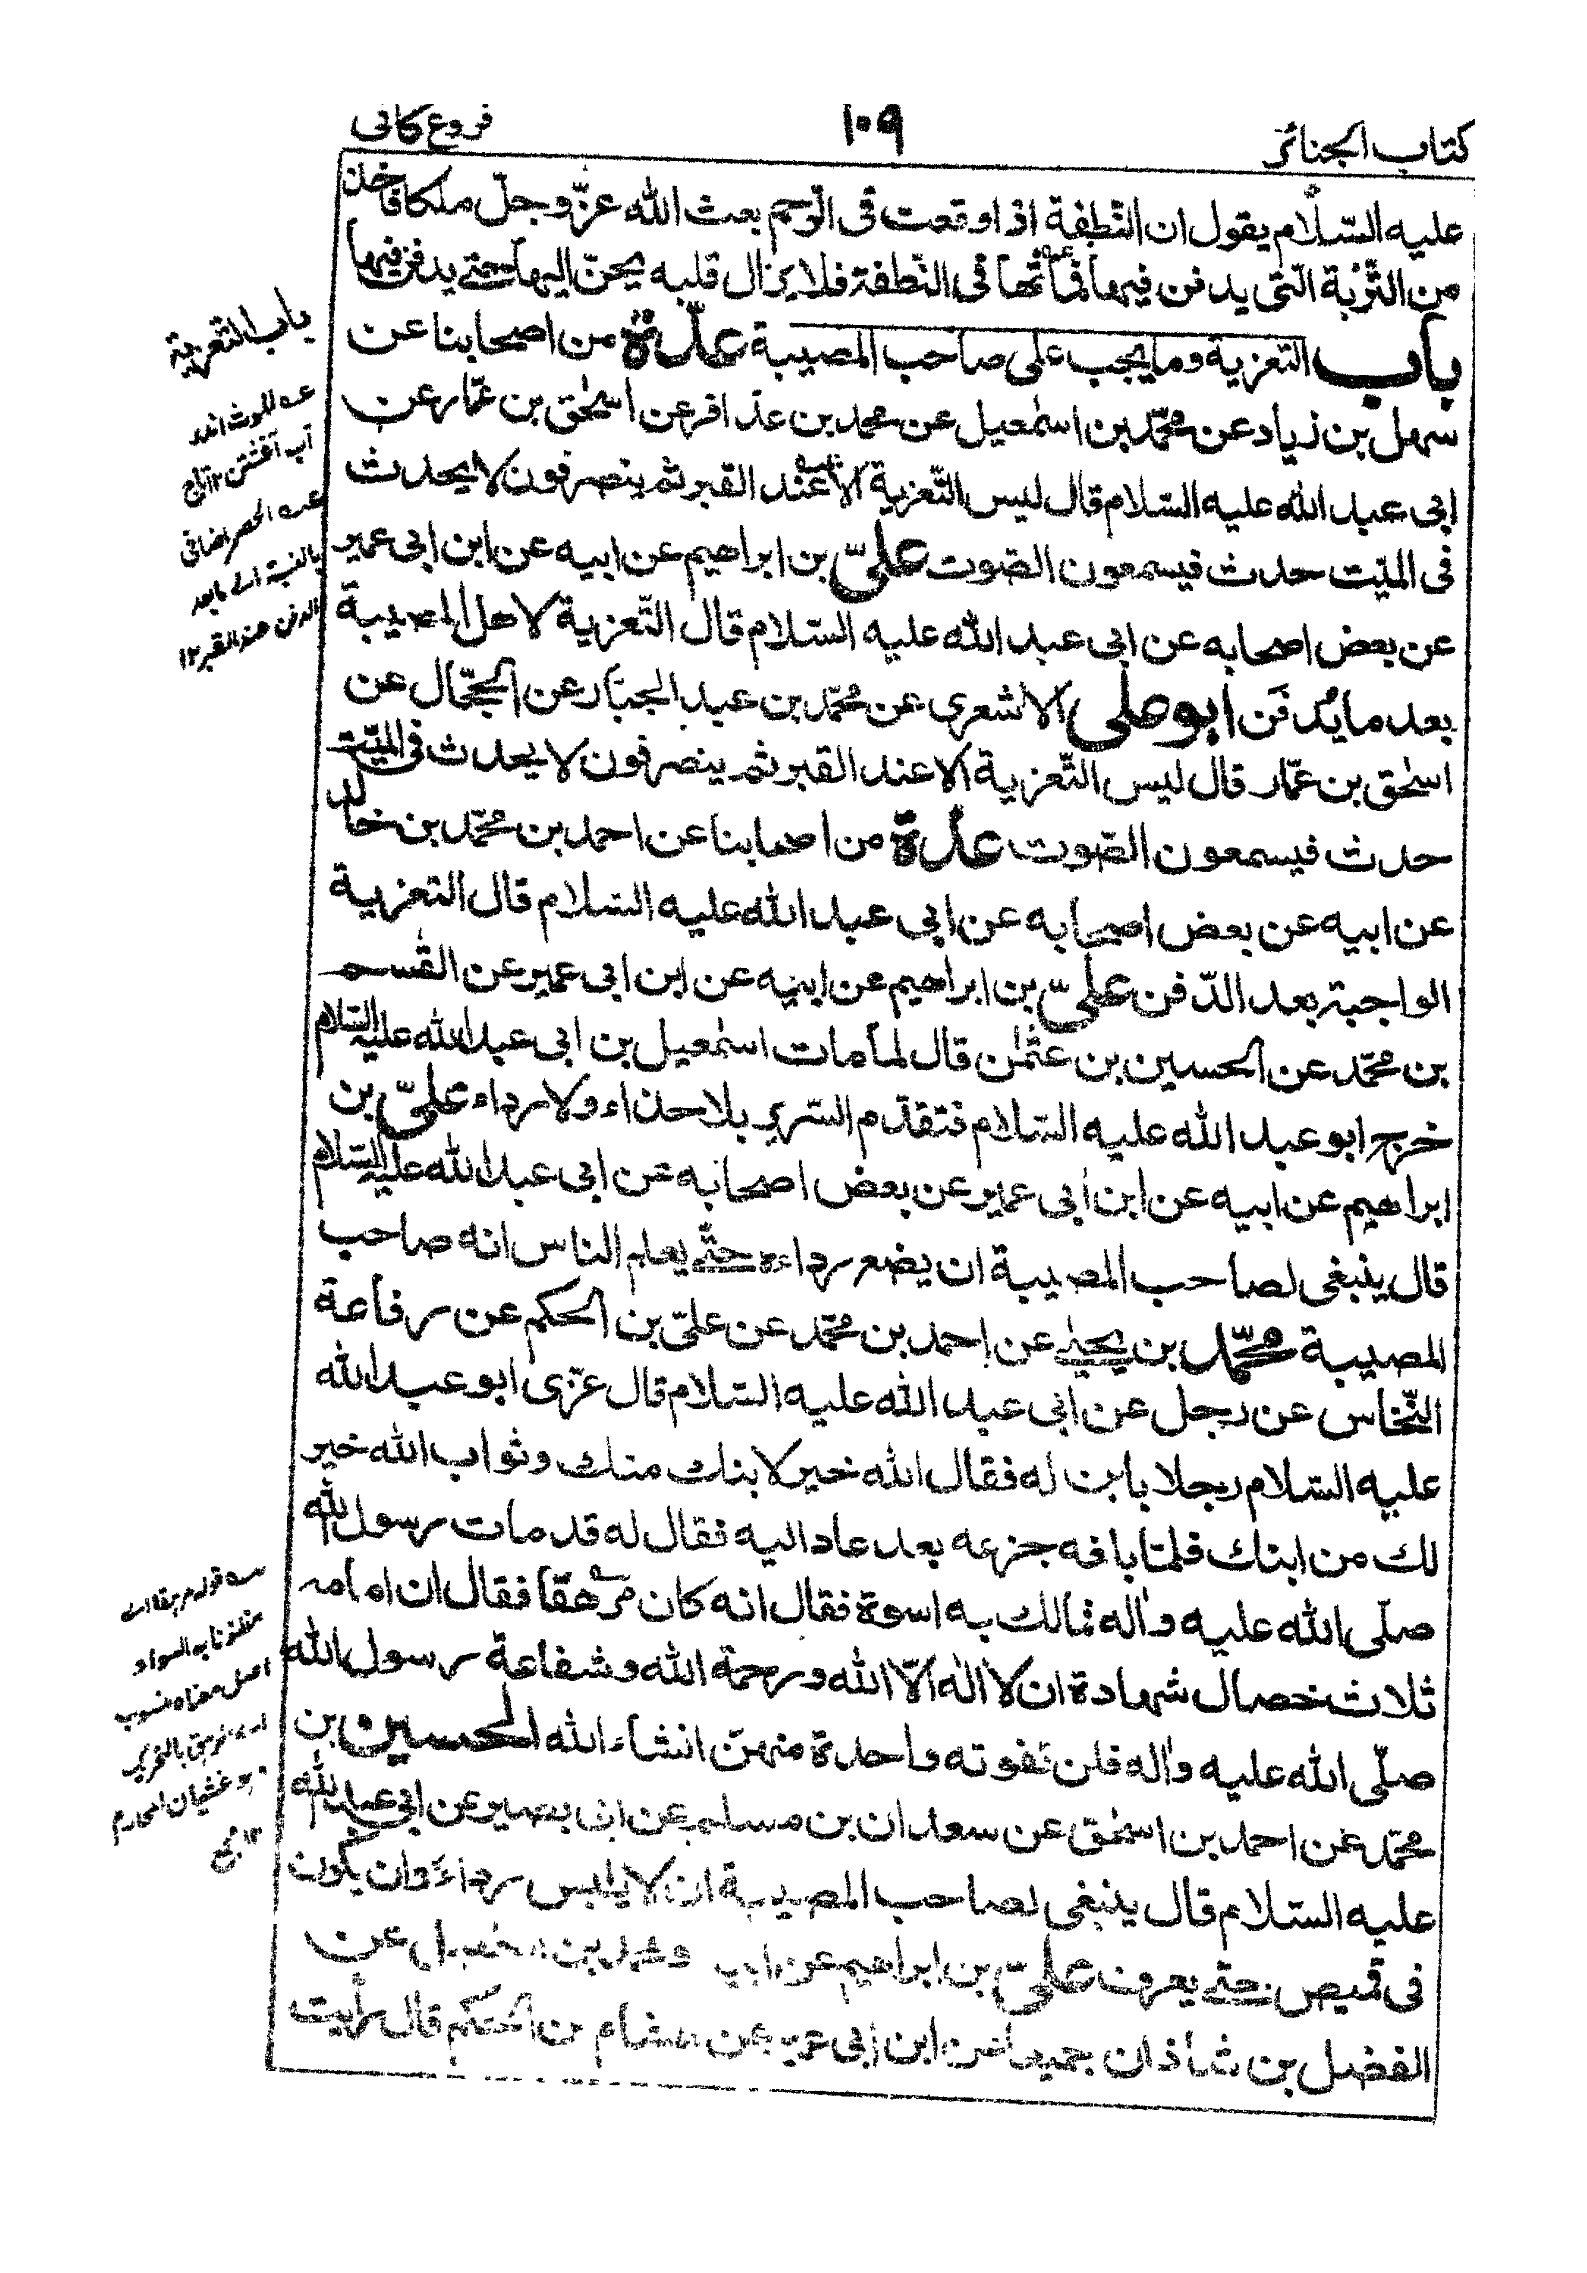 كتاب الجنائز
١٠٩
فروع كافى
عليه السّلام يقول ان النّطفة اذا وقعت فى الرّحم بعث الله عزّ وجلّ ملكا فاخذ
من التّربة الّتى يدفن فيها فماثها فى النّطفة فلا يزال قلبه يحنّ اليها حتى يدفن فيها
باب التعزية وما يجب على صاحب المصيبة عدّة من اصحابنا عن
سهل بن زياد عن محمّد بن اسمٰعيل عن محمد بن عذافر عن اسحٰق بن عمّار عن
ابى عبد الله عليه السّلام قال ليس التّعزية الا عند القبر ثم ينصرفون لا يحدث
فى الميّت حدث فيسمعون الصّوت علىّ بن ابراهيم عن ابيه عن ابن ابى عمير
عن بعض اصحابه عن ابى عبد الله عليه السّلام قال التّعزية لاهل المصيبة
بعد ما يُدفَن ابو على الاشعرى عن محمّد بن عبد الجبّار عن الحجّال عن
اسحٰق بن عمّار قال ليس التّعزية الا عند القبر ثم ينصرفون لا يحدث فى الميّت
حدث فيسمعون الصّوت عدّة من اصحابنا عن احمد بن محمّد بن خالد
عن ابيه عن بعض اصحابه عن ابى عبد الله عليه السّلام قال التعزية
الواجبة بعد الدّفن علىّ بن ابراهيم عن ابيه عن ابن ابى عمير عن القٰسم
بن محمّد عن الحسين بن عثمٰن قال لما مات اسمٰعيل بن ابى عبد الله عليه السّلام
خرج ابو عبد الله عليه السّلام فتقدّم السّرير بلا حذاء ولا رداء علىّ بن
ابراهيم عن ابيه عن ابن ابى عمير عن بعض اصحابه عن ابى عبد الله عليه السّلام
قال ينبغى لصاحب المصيبة ان يضع رداءه حتّى يعلم الناس انه صاحب
المصيبة محمّد بن يحيٰى عن احمد بن محمّد عن علىّ بن الحكم عن رفاعة
النّخّاس عن رجل عن ابى عبد الله عليه السّلام قال عزّى ابو عبد الله
عليه السّلام رجلا بابن له فقال الله خير لابنك منك وثواب الله خير
لك من ابنك فلمّا بلغه جزعه بعد عاد اليه فقال له قد مات رسول الله
صلّى الله عليه واٰله فمالك به اسوة فقال انه كان مرهّقا فقال ان امامه
ثلاث خصال شهادة ان لا الٰه الّا الله ورحمة الله وشفاعة رسول الله
صلّى الله عليه واٰله فلن تفوته واحدة منهنّ انشاء الله الحسين بن
محمّد عن احمد بن اسحٰق عن سعدان بن مسلم عن ابى بصير عن ابى عبد الله
عليه السّلام قال ينبغى لصاحب المصيبة ان لا يلبس رداء وان يكون
فى قميص حتى يعرف علىّ بن ابراهيم عن ابيه و محمد بن اسمعيل عن
الفضل بن شاذان جميعا عن ابن ابى عمير عن هشام بن الحكم قال رايت
باب التّعزية
آب آغشتن ١٢ تاج
عنه الحصر اضافى
بالنسبة الى ما بعد
الدفن عند القبر ١٢